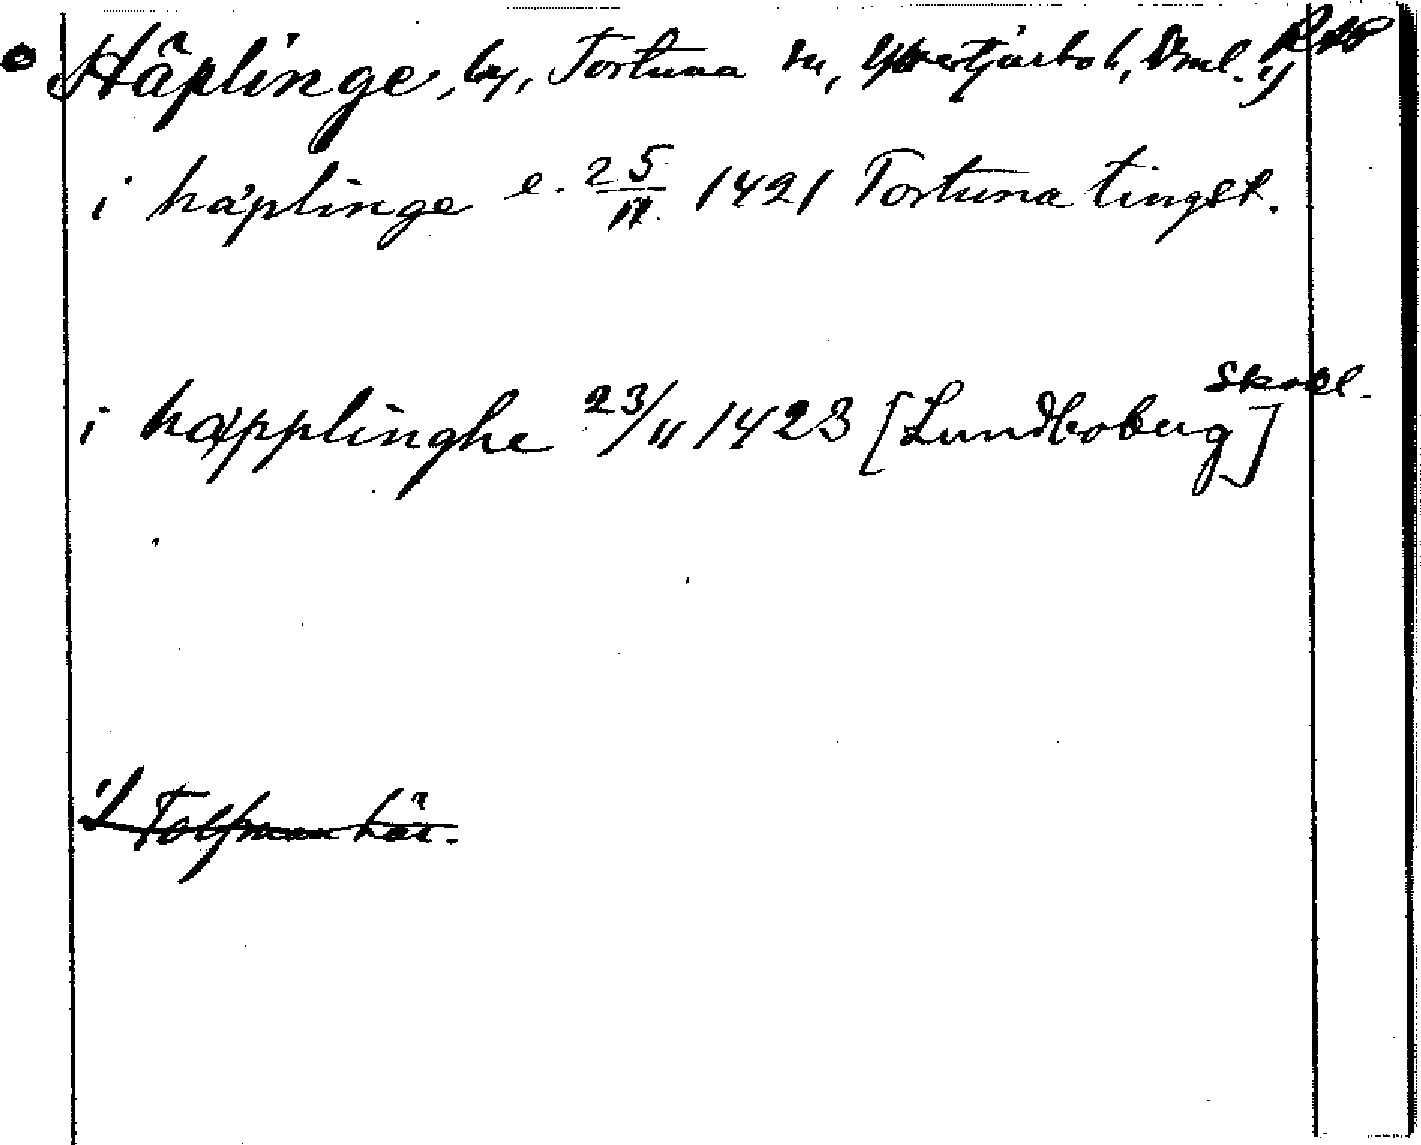 Häplinge, by, Tortuna sn, Yttertjurbo h, Vml.
i häplinge e. 25/IV. 1421 Tortuna tingst.
i häpplinghe 23/11 1423 [Lundboberg] Skokl.
Tolfman här.